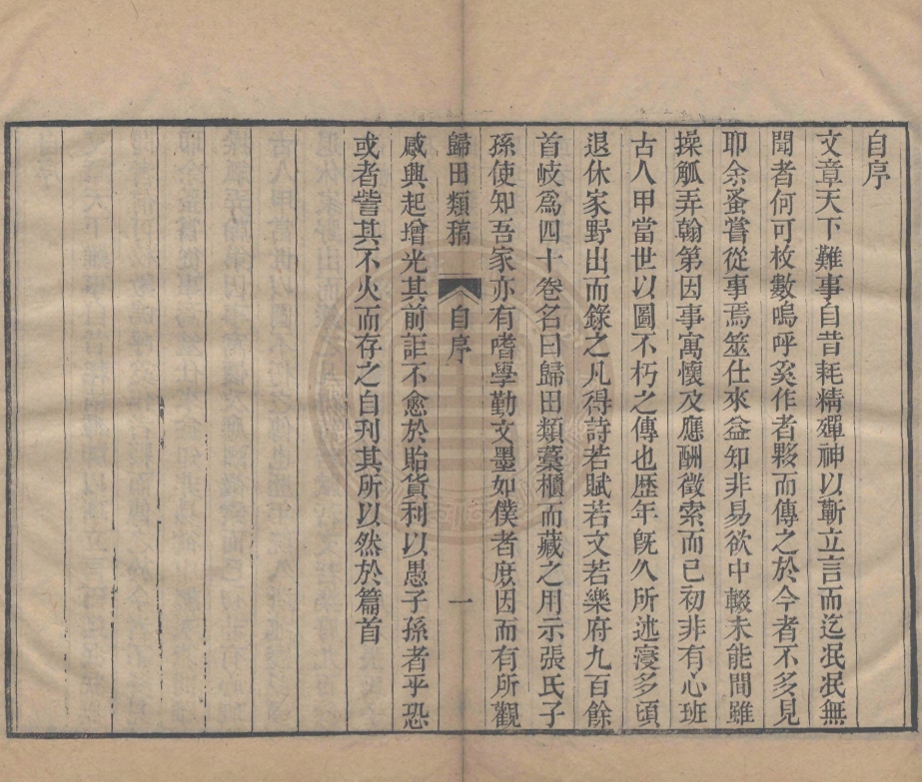 自序
文章天下難事自昔耗精殫神以蘄立言而迄泯泯無
聞者何可枚數嗚呼奚作者夥而傳之於今者不多見
耶余蚤嘗從事焉筮仕來益知非易欲中輟未能間雖
操觚弄翰第因事寓懷及應酬徵索而已初非有心班
古人甲當世以圖不朽之傳也歴年旣久所述寖多頃
退休家野出而錄之凡得詩若賦若文若樂府九百餘
首岐爲四十卷名曰歸田類藁櫃而藏之用示張氏子
孫使知吾家亦有嗜學勤文墨如僕者庶因而有所觀
歸田類稿 自序 一
感興起增光其前詎不愈於貽貨利以愚子孫者乎恐
或者訾其不火而存之自刊其所以然於篇首